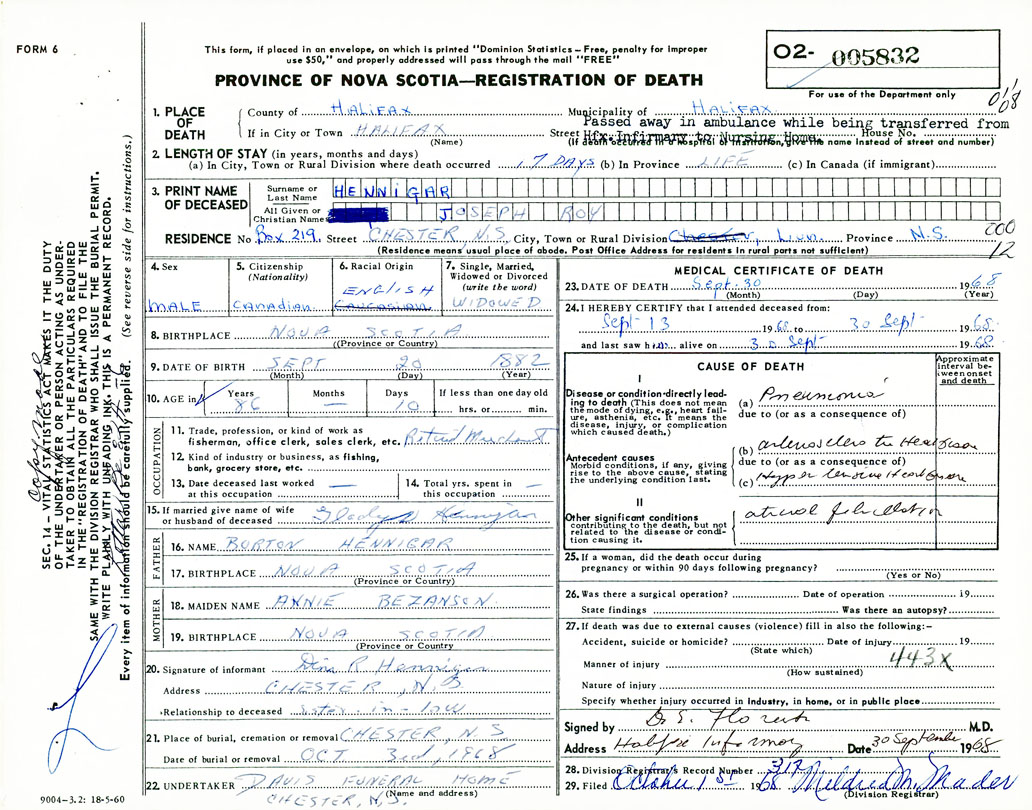 FORM 6
This form, if placed in an envelope, on which is printed "Dominion Statistics – Free, penalty for improper
use $50," and properly addressed will pass through the mail "FREE"
PROVINCE OF NOVA SCOTIA—REGISTRATION OF DEATH
02- 005832
For use of the Department only
1. PLACE OF DEATH
County of HALIFAX Municipality of HALIFAX
Passed away in ambulance while being transferred from
If in City or Town HALIFAX Street Hfx. Infirmary to Nursing Home. House No.
(Name) (If death occurred in a hospital or institution, give the name instead of street and number)
2. LENGTH OF STAY (in years, months and days)
(a) In City, Town or Rural Division where death occurred 17 DAYS (b) In Province LIFE (c) In Canada (if immigrant)
3. PRINT NAME OF DECEASED
Surname or Last Name HENNIGAR
All Given or Christian Names JOSEPH ROY
RESIDENCE No. Box 219, Street CHESTER N.S. City, Town or Rural Division Chester, Lun. Province N.S.
200
12
(Residence means usual place of abode. Post Office Address for residents in rural parts not sufficient)
4. Sex
MALE
5. Citizenship
(Nationality)
Canadian
6. Racial Origin
ENGLISH
Caucasian
7. Single, Married,
Widowed or Divorced
(write the word)
WIDOWED
8. BIRTHPLACE NOVA SCOTIA
((Province or Country)
9. DATE OF BIRTH SEPT 20 1882
(Month) (Day) (Year)
10. AGE in Years Months Days If less than one day old
86 — 10 hrs. or min.
OCCUPATION
11. Trade, profession, or kind of work as
fisherman, office clerk, sales clerk, etc. Retired Merchant
12. Kind of industry or business, as fishing,
bank, grocery store, etc.
13. Date deceased last worked at this occupation —
14. Total yrs. spent in this occupation —
15. If married give name of wife
or husband of deceased Gladys Hennigar
FATHER
16. NAME BORTON HENNIGAR
17. BIRTHPLACE NOVA SCOTIA
(Province or Country)
MOTHER
18. MAIDEN NAME ANNIE BEZANSON
19. BIRTHPLACE NOVA SCOTIA
(Province or Country
20. Signature of informant R Hennigar
Address CHESTER, N.S
Relationship to deceased Sister-in-law
21. Place of burial, cremation or removal CHESTER, N.S
Date of burial or removal OCT 3rd, 1968
22. UNDERTAKER DAVIS FUNERAL HOME
(Name and address)
CHESTER, N.S.
MEDICAL CERTIFICATE OF DEATH
23. DATE OF DEATH Sept. 30 1968
(Month) (Day) (Year)
24. I HEREBY CERTIFY that I attended deceased from:
Sept - 13 1968 to 30 Sept 1968
and last saw him alive on 30 Sept 1968
CAUSE OF DEATH
Approximate
interval be-
tween onset
and death
I
Disease or condition directly lead-
ing to death (This does not mean
the mode of dying, e.g., heart fail-
ure, asthenia, etc. It means the
disease, injury, or complication
which caused death.)
(a) Pneumonia
due to (or as a consequence of)
Antecedent causes
Morbid conditions, if any, giving
rise to the above cause, stating
the underlying condition last.
(b) arterosclerotic Heart Disease
due to (or as a consequence of)
(c) Hypertensive Heart Disease
II
Other significant conditions
contributing to the death, but not
related to the disease or condi-
tion causing it.
atrial fibrillation
25. If a woman, did the death occur during
pregnancy or within 90 days following pregnancy?
(Yes or No)
26. Was there a surgical operation? Date of operation 19
State findings Was there an autopsy?
27. If death was due to external causes (violence) fill in also the following:-
Accident, suicide or homicide? Date of injury 19
(State which)
443X
Manner of injury
(How sustained)
Nature of injury
Specify whether injury occurred in industry, in home, or in public place
Signed by M.D.
Address Halifax Infirmary Date 30 September 1968
28. Division Registrar's Record Number 317
29. Filed October 1st 1968 Mildred M. Mader
(Division Registrar)
SEC. 14 – VITAL STATISTICS ACT MAKES IT THE DUTY
OF THE UNDERTAKER OR PERSON ACTING AS UNDER-
TAKER TO OBTAIN ALL THE PARTICULARS REQUIRED
IN THE "REGISTRATION OF DEATH" AND TO FILE THE
SAME WITH THE DIVISION REGISTRAR WHO SHALL ISSUE THE BURIAL PERMIT.
WRITE PLAINLY WITH UNFADING INK. THIS IS A PERMANENT RECORD.
Every item of information should be carefully supplied. (See reverse side for instructions.)
9004–3.2: 18-5-60